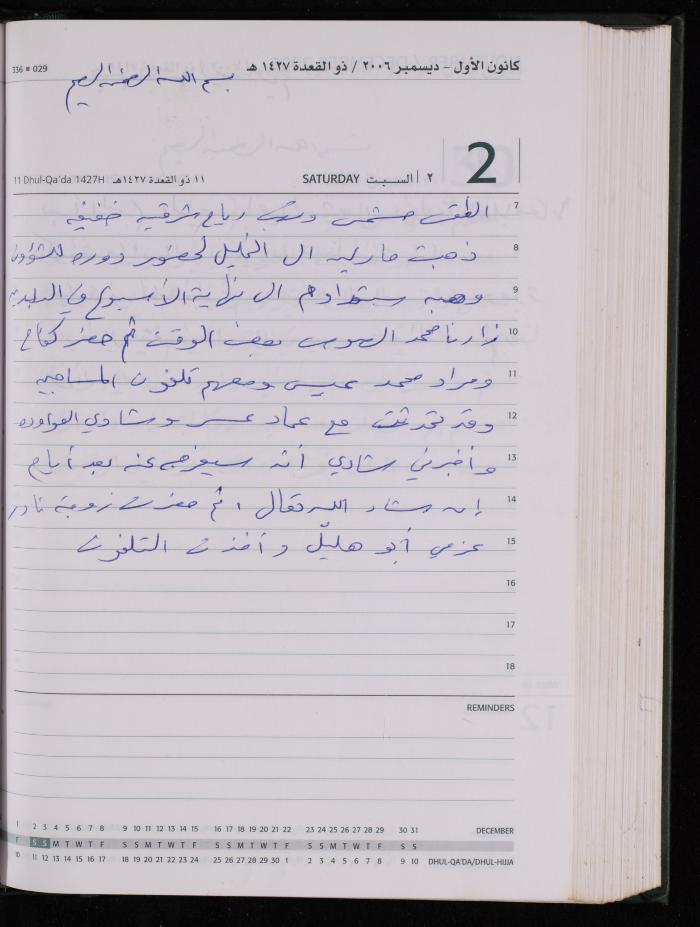 336 ■ 029
كانون الأول - ديسمبر ٢٠٠٦ / ذو القعدة ١٤٢٧ هـ
بسم الله الرحمن الرحيم
2
11 Dhul-Qa'da 1427H ١١ ذو القعدة ١٤٢٧هـ SATURDAY ٢ السبت
7 الطقس مشمس رياح شرقيه خفيفه
8 ذهبت ماريه الى الخليل لحضور دوره للشؤون
9 وهبه ستداوم الى نهاية الأسبوع في البلديه
10 زارنا محمد بعض الوقت ثم حضر كفاح
11 ومراد محمد عيسى ومعهم تلفون
12 وقد تحدثت مع عماد وشادي
13 وأخبرني شادي أنه سيفرج عنه بعد أيام
14 إن شاء الله تعالى ، ثم حضرت زوجة نادر
15 عزمي أبو هليّل وأخذت التلفون
16
17
18
REMINDERS
1 2 3 4 5 6 7 8 9 10 11 12 13 14 15 16 17 18 19 20 21 22 23 24 25 26 27 28 29 30 31 DECEMBER
F S S M T W T F S S M T W T F S S M T W T F S S M T W T F S S
10 11 12 13 14 15 16 17 18 19 20 21 22 23 24 25 26 27 28 29 30 1 2 3 4 5 6 7 8 9 10 DHUL-QA'DA/DHUL-HIJJA